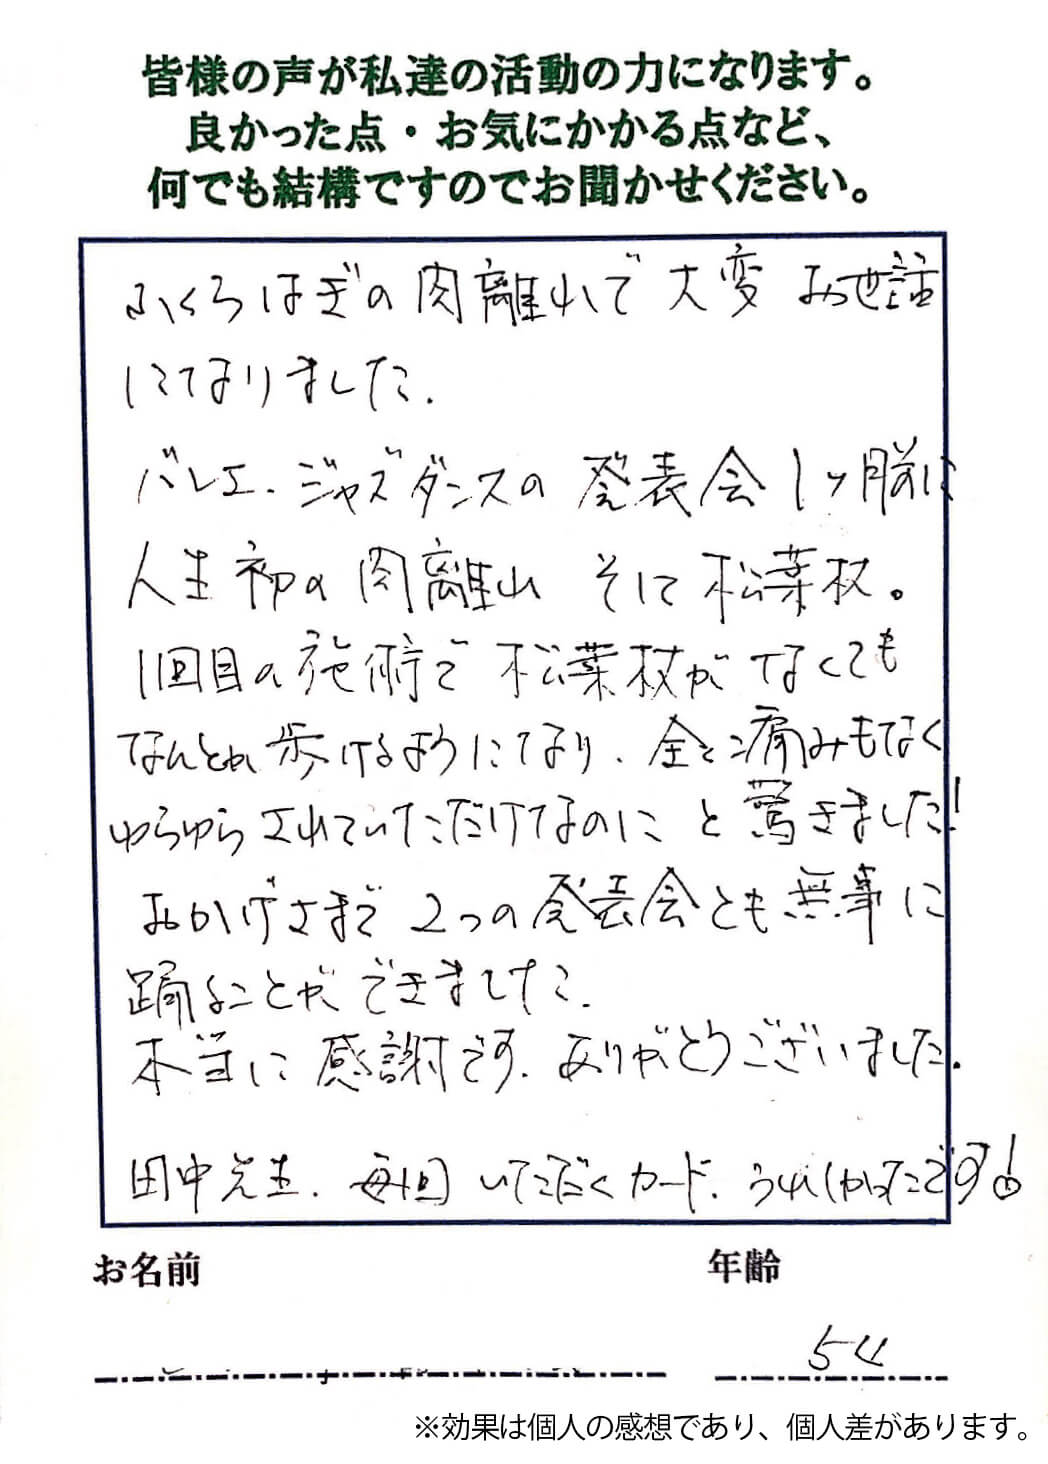 皆様の声が私達の活動の力になります。
良かった点・お気にかかる点など、
何でも結構ですのでお聞かせください。
ふくらはぎの肉離れで大変お世話
になりました.
バレエ.ジャズダンスの発表会1ヶ月前に
人生初の肉離れ そして松葉杖。
1回目の施術で松葉杖がなくても
なんとか歩けるようになり、全く痛みもなく
ゆらゆらされていただけなのにと驚きました!
おかげさまで2つの発表会とも無事に
踊ることができました.
本当に感謝です.ありがとうございました.
田中先生.毎回いただくカード.うれしかったです!
お名前
年齢
54
※効果は個人の感想であり、個人差があります。